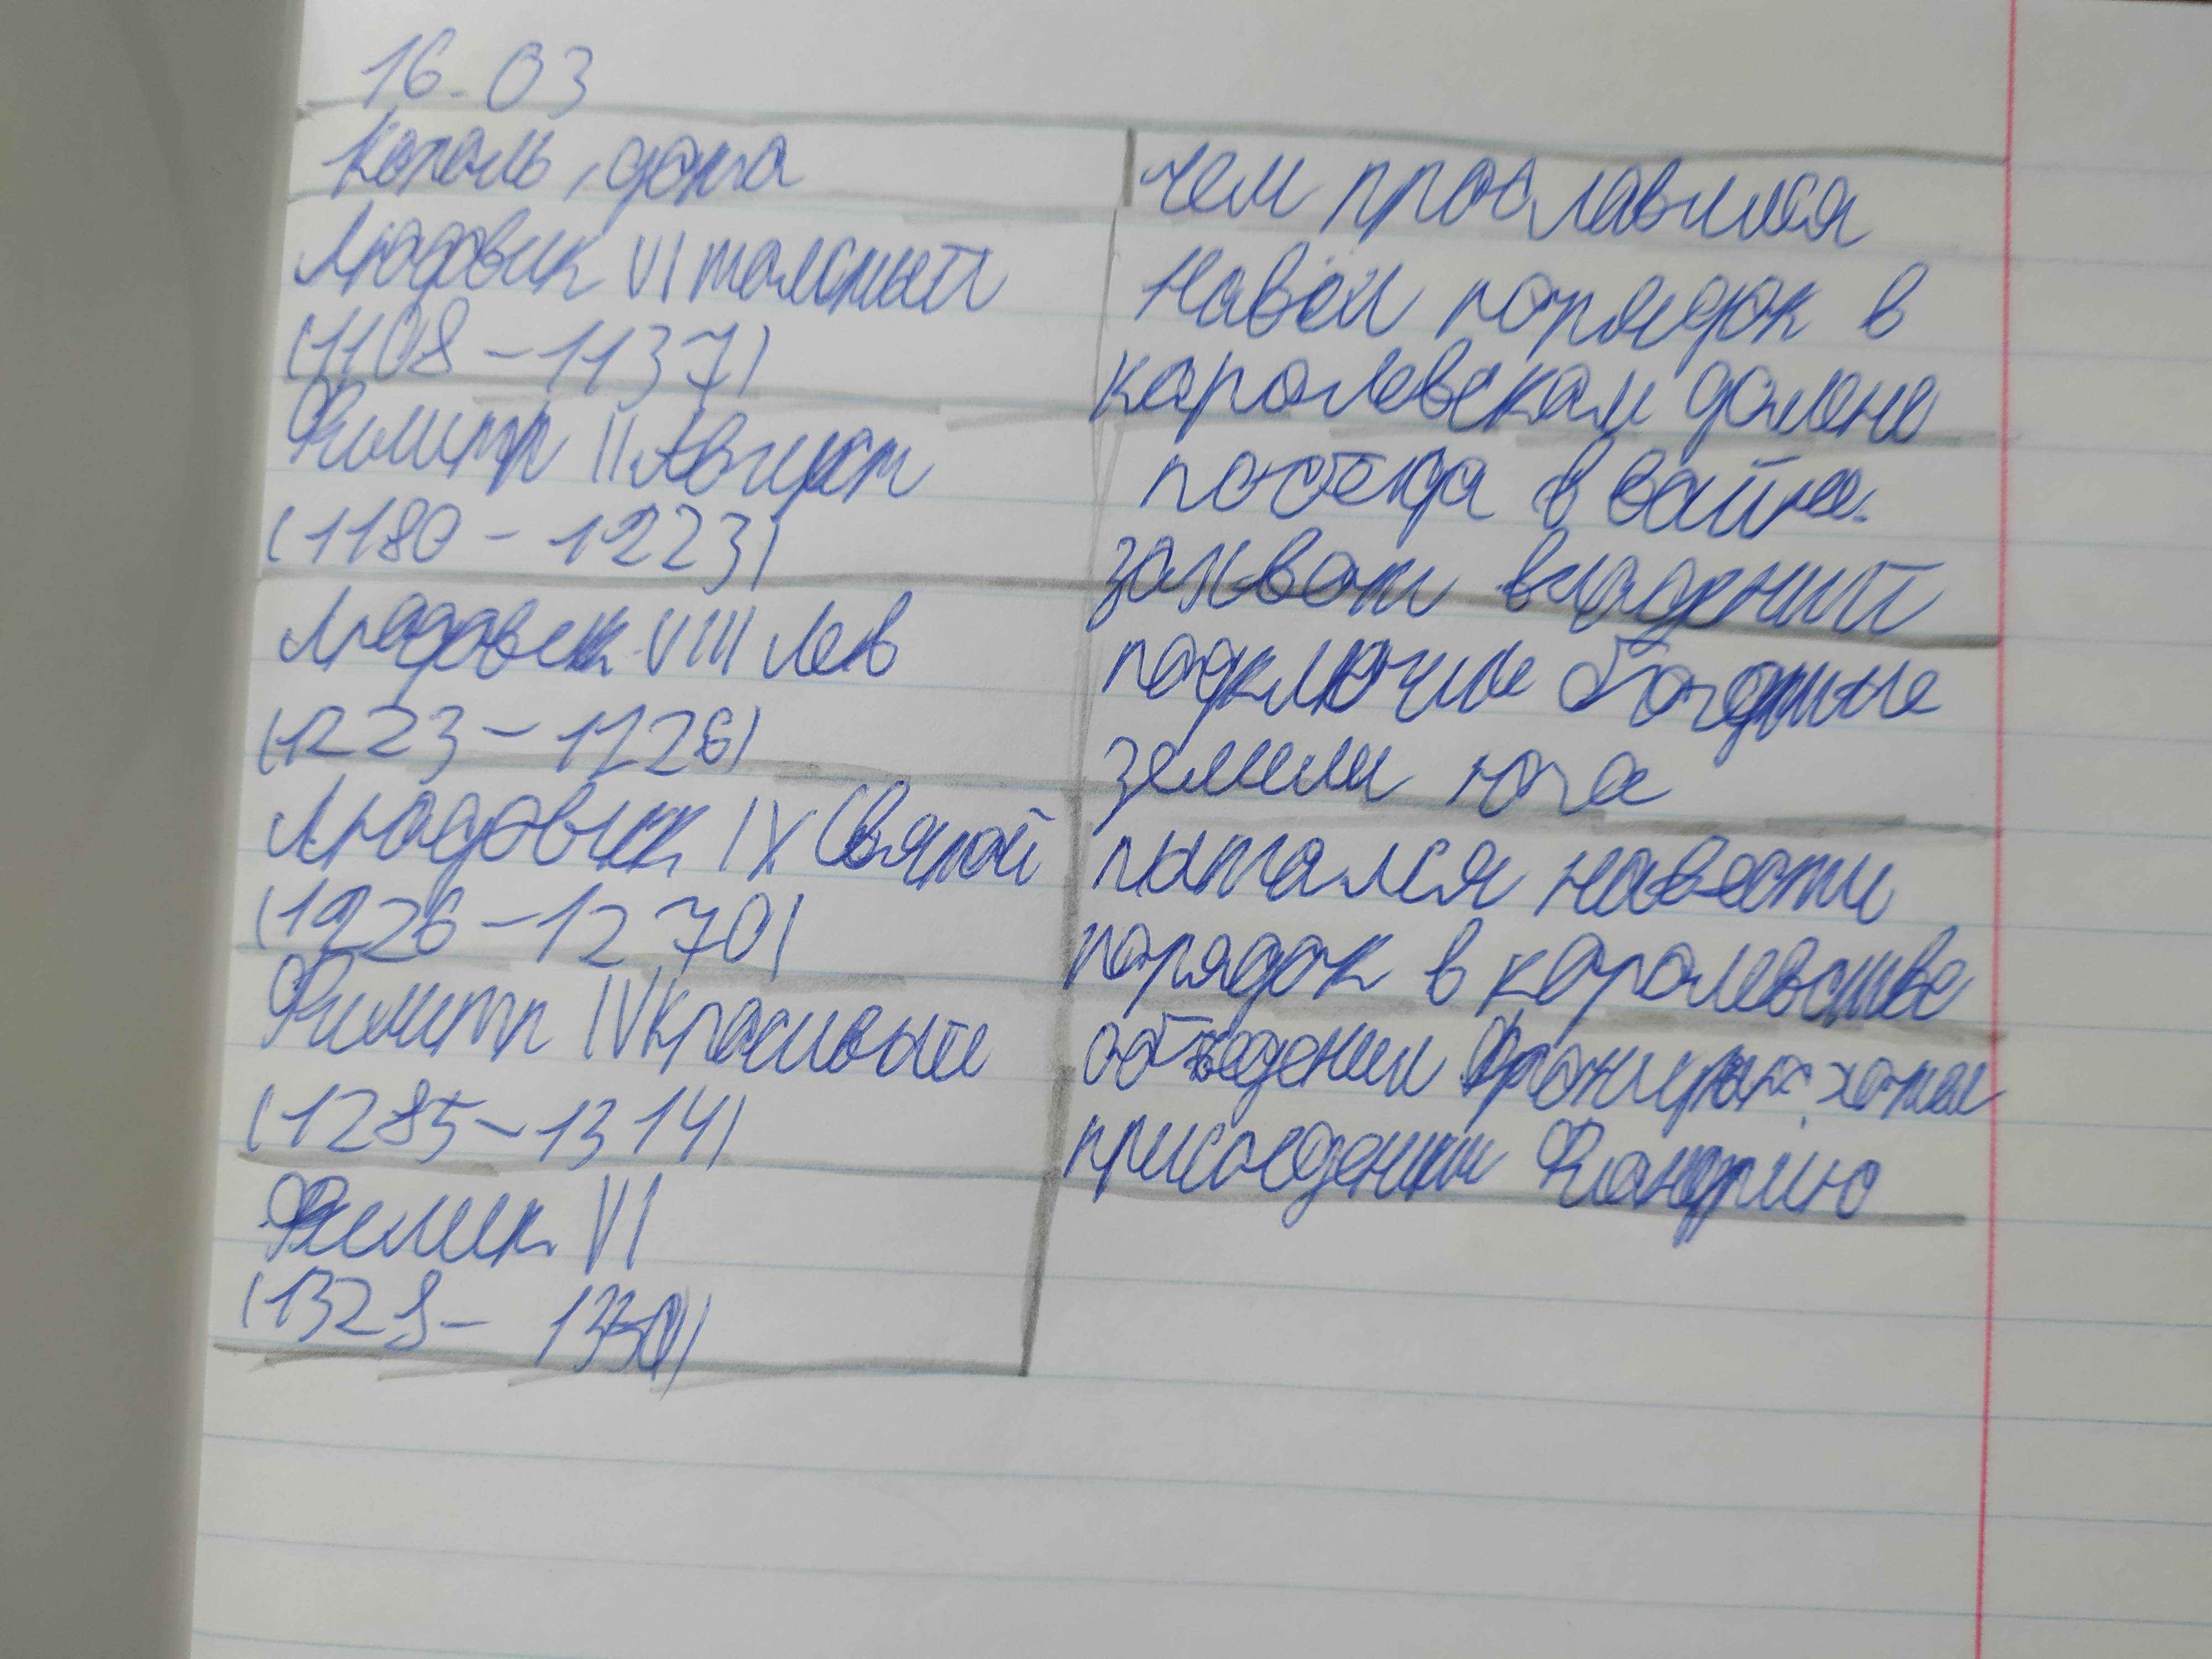 16.03
Король, дата
чем прославился
Людовик VI толстый
(1108-1137)
Навёл порядок в
королевском домене
Филипп II Август
(1180-1223)
победа в войне.
захват владений
Людовик VIII лев
(1223-1126)
подключил богатые
земли юга
Людовик IX Святой
(1226-1270)
пытался навести
порядок в королевстве
Филипп IV Красивый
(1285-1314)
объеденил хотел
присоеденить Фландрию
VI
(1328-